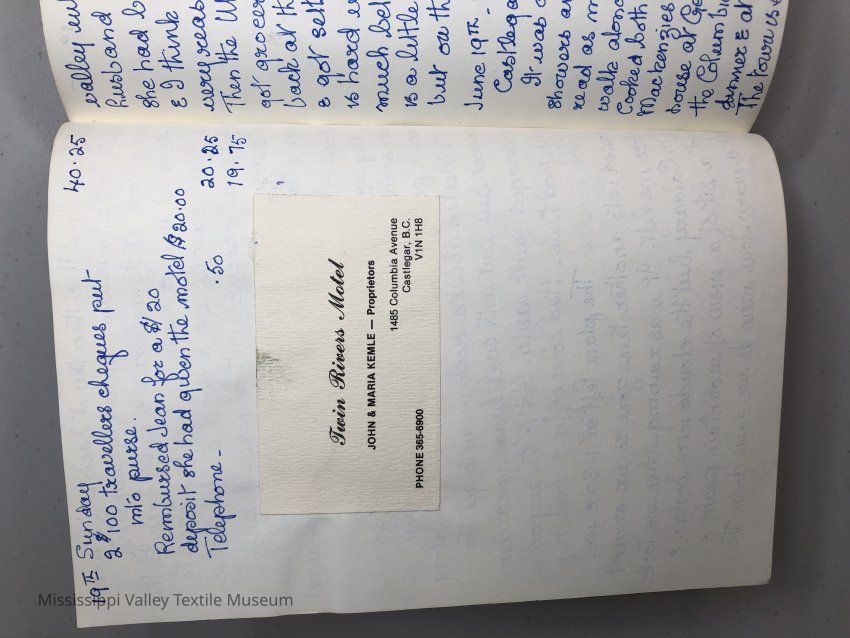 19th Sunday 40.25
2 $100 travellers cheques put
into purse.
Reimbursed Jean for a $20
deposit she had given the motel $20.00 20.25
Telephone - .50 19.75
Twin Rivers Motel
JOHN & MARIA KEMLE — Proprietors
1485 Columbia Avenue
Castlegar, B.C.
PHONE 365-6900 V1N 1H8
valley
husband
she had b
& I think
very reas
Then the W
got grocer
back at th
& got sett
is hard
much bel
is a little
but on th
June 19th -
Castlega
It was
showers a
read as m
walk alon
Cooked both
Mackenzies
house at
the Columbi
dinner & at
The town is
Mississippi Valley Textile Museum